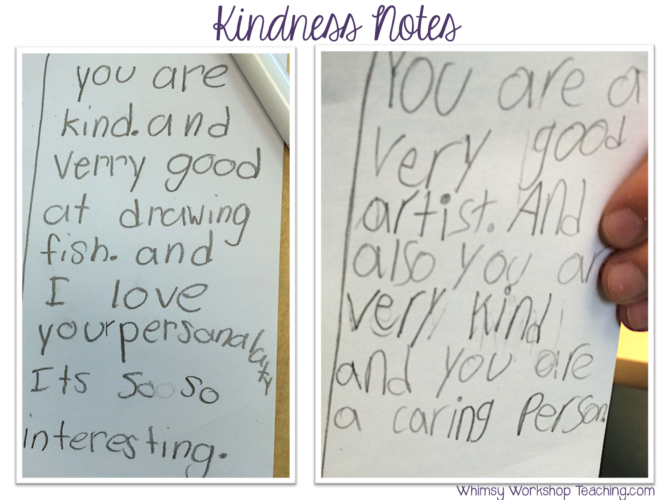 Kindness Notes
you are
kind. and
verry good
at drawing
fish. and
I love
your personalaty
Its so so
interesting.
You are a
very good
artist. And
also you ar
very kind
and you are
a caring Person.
Whimsy Workshop Teaching.com